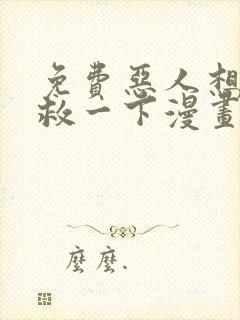 免费惡人想
救一下漫畫
麽麽.